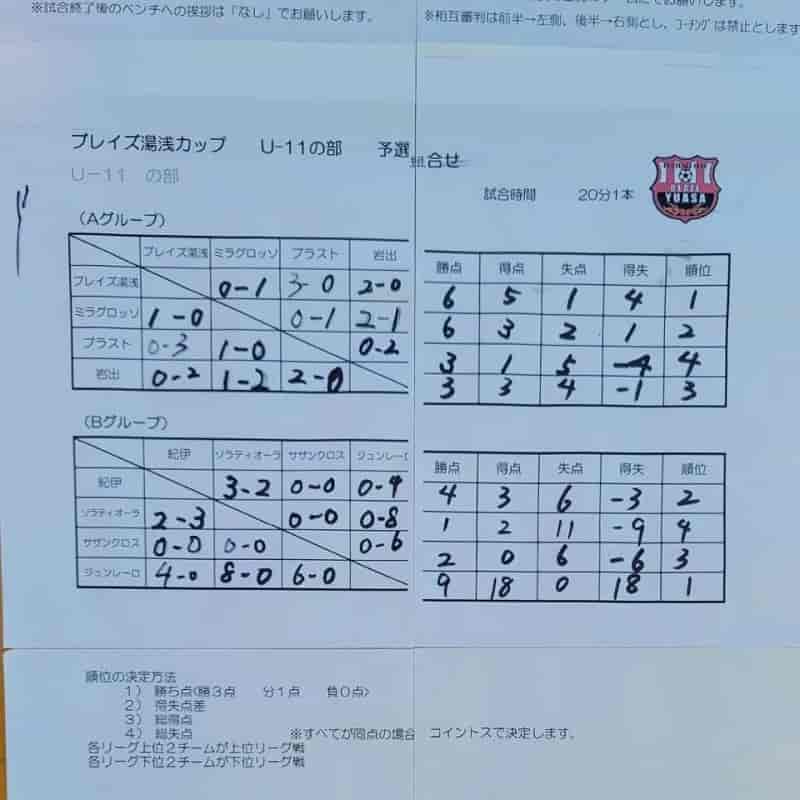 ※試合終了後のベンチへの挨拶は「なし」でお願いします。
※相互審判は前半→左側、後半→右側とし、コーチングは禁止とします
プレイズ湯浅カップ U-11の部 予選組合せ
U-11 の部
試合時間 20分1本
YUASA
(Aグループ)
プレイズ湯浅 ミラグロッソ プラスト 岩出 勝点 得点 失点 得失 順位
プレイズ湯浅 0-1 3-0 2-0 6 5 1 4 1
ミラグロッソ 1-0 0-1 2-1 6 3 2 1 2
プラスト 0-3 1-0 0-2 3 1 5 -4 4
岩出 0-2 1-2 2-0 3 3 4 -1 3
(Bグループ)
紀伊 ソラティオーラ サザンクロス ジュンレーロ 勝点 得点 失点 得失 順位
紀伊 3-2 0-0 0-4 4 3 6 -3 2
ソラティオーラ 2-3 0-0 0-8 1 2 11 -9 4
サザンクロス 0-0 0-0 0-6 2 0 6 -6 3
ジュンレーロ 4-0 8-0 6-0 9 18 0 18 1
順位の決定方法
1) 勝ち点<勝3点 分1点 負0点>
2) 得失点差
3) 総得点
4) 総失点 ※すべてが同点の場合 コイントスで決定します。
各リーグ上位2チームが上位リーグ戦
各リーグ下位2チームが下位リーグ戦